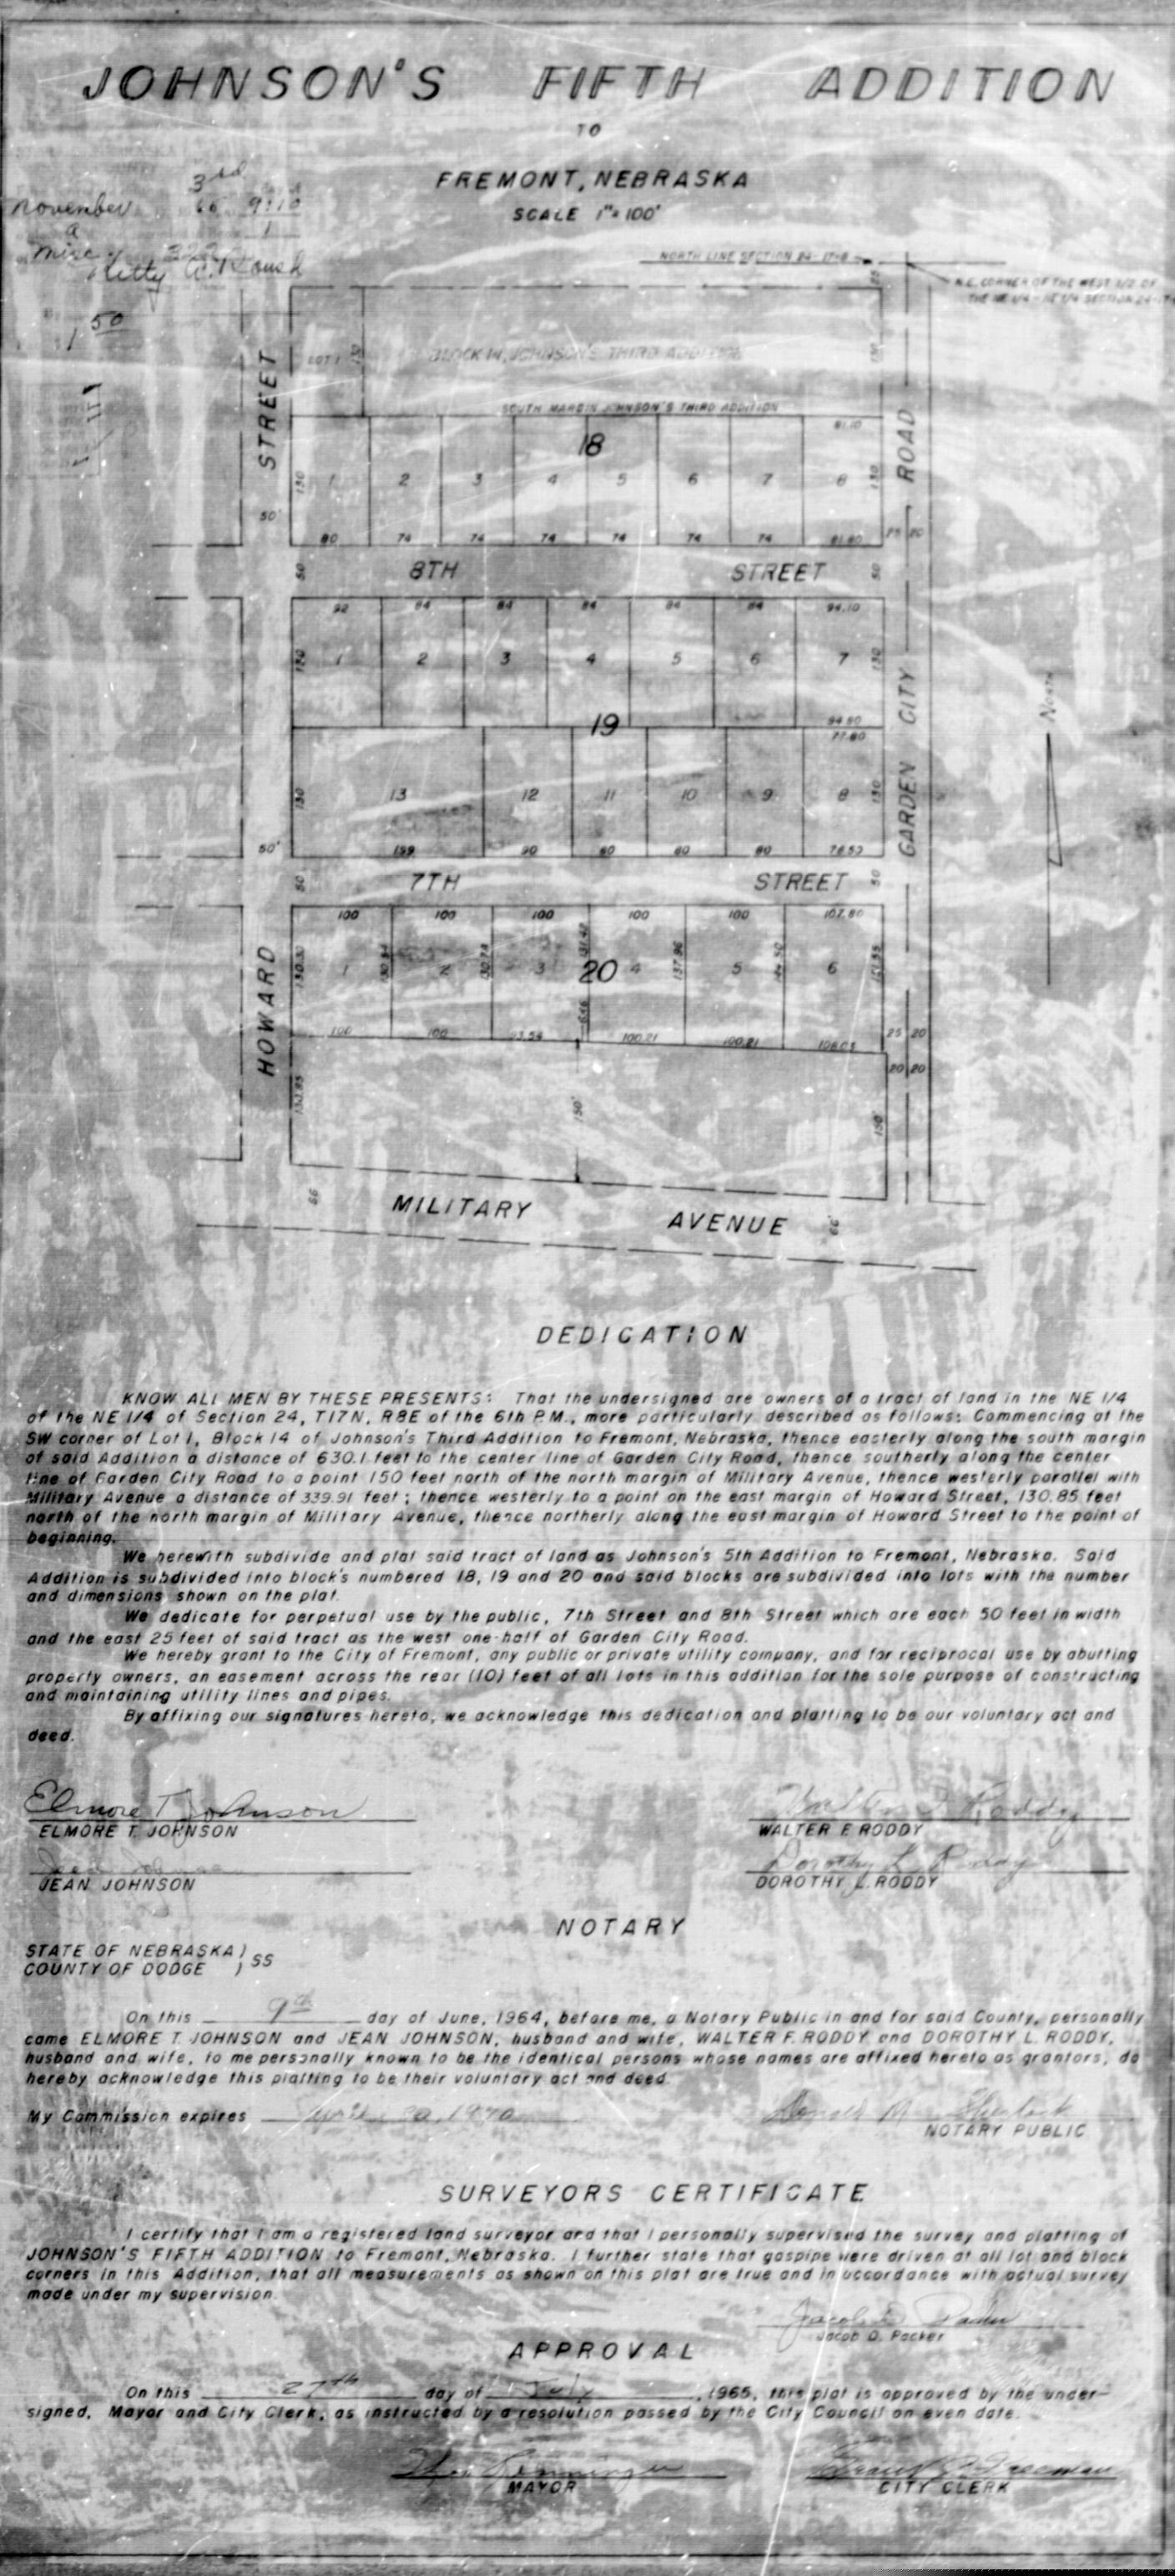 JOHNSON'S FIFTH ADDITION
TO
FREMONT, NEBRASKA
SCALE 1"=100'
3rd
november 65 9:10
a 1
misc.
Betty A. Roush
1 50
NORTH LINE SECTION 24-17-8
N.E. CORNER OF THE WEST 1/2 OF
THE NE 1/4 - NE 1/4 SECTION 24-17-8
25
LOT 1 130 BLOCK 14, JOHNSON'S THIRD ADDITION 130
SOUTH MARGIN JOHNSON'S THIRD ADDITION
STREET
ROAD
18 81.10
130 1 2 3 4 5 6 7 8 130
50'
80 74 74 74 74 74 74 81.80 25 20
50 8TH STREET 50
92 84 84 84 84 84 94.10
130 1 2 3 4 5 6 7 130
CITY
North
19 94.50
77.80
130 13 12 11 10 9 8 130
GARDEN
50' 199 90 80 80 80 78.53
50 7TH STREET 50
100 100 100 100 100 107.80
130.30 1 2 3 20 4 5 6
130.78 131.42 137.96 144.50
HOWARD
6.46
100 100 93.54 100.21 100.21 108.03 25 20
20 20
130.85 150' 150'
66 MILITARY AVENUE 66'
DEDICATION
KNOW ALL MEN BY THESE PRESENTS: That the undersigned are owners of a tract of land in the NE 1/4
of the NE 1/4 of Section 24, T17N, R8E of the 6th P.M., more particularly described as follows: Commencing at the
SW corner of Lot 1, Block 14 of Johnson's Third Addition to Fremont, Nebraska, thence easterly along the south margin
of said Addition a distance of 630.1 feet to the center line of Garden City Road, thence southerly along the center
line of Garden City Road to a point 150 feet north of the north margin of Military Avenue, thence westerly parallel with
Military Avenue a distance of 339.91 feet; thence westerly to a point on the east margin of Howard Street, 130.85 feet
north of the north margin of Military Avenue, thence northerly along the east margin of Howard Street to the point of
beginning.
We herewith subdivide and plat said tract of land as Johnson's 5th Addition to Fremont, Nebraska. Said
Addition is subdivided into block's numbered 18, 19 and 20 and said blocks are subdivided into lots with the number
and dimensions shown on the plat.
We dedicate for perpetual use by the public, 7th Street and 8th Street which are each 50 feet in width
and the east 25 feet of said tract as the west one-half of Garden City Road.
We hereby grant to the City of Fremont, any public or private utility company, and for reciprocal use by abutting
property owners, an easement across the rear (10) feet of all lots in this addition for the sole purpose of constructing
and maintaining utility lines and pipes.
By affixing our signatures hereto, we acknowledge this dedication and platting to be our voluntary act and
deed.
Elmore T Johnson Walter F Roddy
ELMORE T. JOHNSON WALTER F. RODDY
Jean Johnson Dorothy L Roddy
JEAN JOHNSON DOROTHY L. RODDY
NOTARY
STATE OF NEBRASKA )
COUNTY OF DODGE ) SS
On this 9th day of June, 1964, before me, a Notary Public in and for said County, personally
came ELMORE T. JOHNSON and JEAN JOHNSON, husband and wife, WALTER F. RODDY and DOROTHY L. RODDY,
husband and wife, to me personally known to be the identical persons whose names are affixed hereto as grantors, do
hereby acknowledge this platting to be their voluntary act and deed.
My Commission expires April 30, 1970 Donald M.
NOTARY PUBLIC
SURVEYORS CERTIFICATE
I certify that I am a registered land surveyor and that I personally supervised the survey and platting of
JOHNSON'S FIFTH ADDITION to Fremont, Nebraska. I further state that gaspipe were driven at all lot and block
corners in this Addition, that all measurements as shown on this plat are true and in accordance with actual survey
made under my supervision.
Jacob D. Packer
Jacob D. Packer
APPROVAL
On this 27th day of July, 1965, this plat is approved by the under-
signed, Mayor and City Clerk, as instructed by a resolution passed by the City Council on even date.
MAYOR CITY CLERK